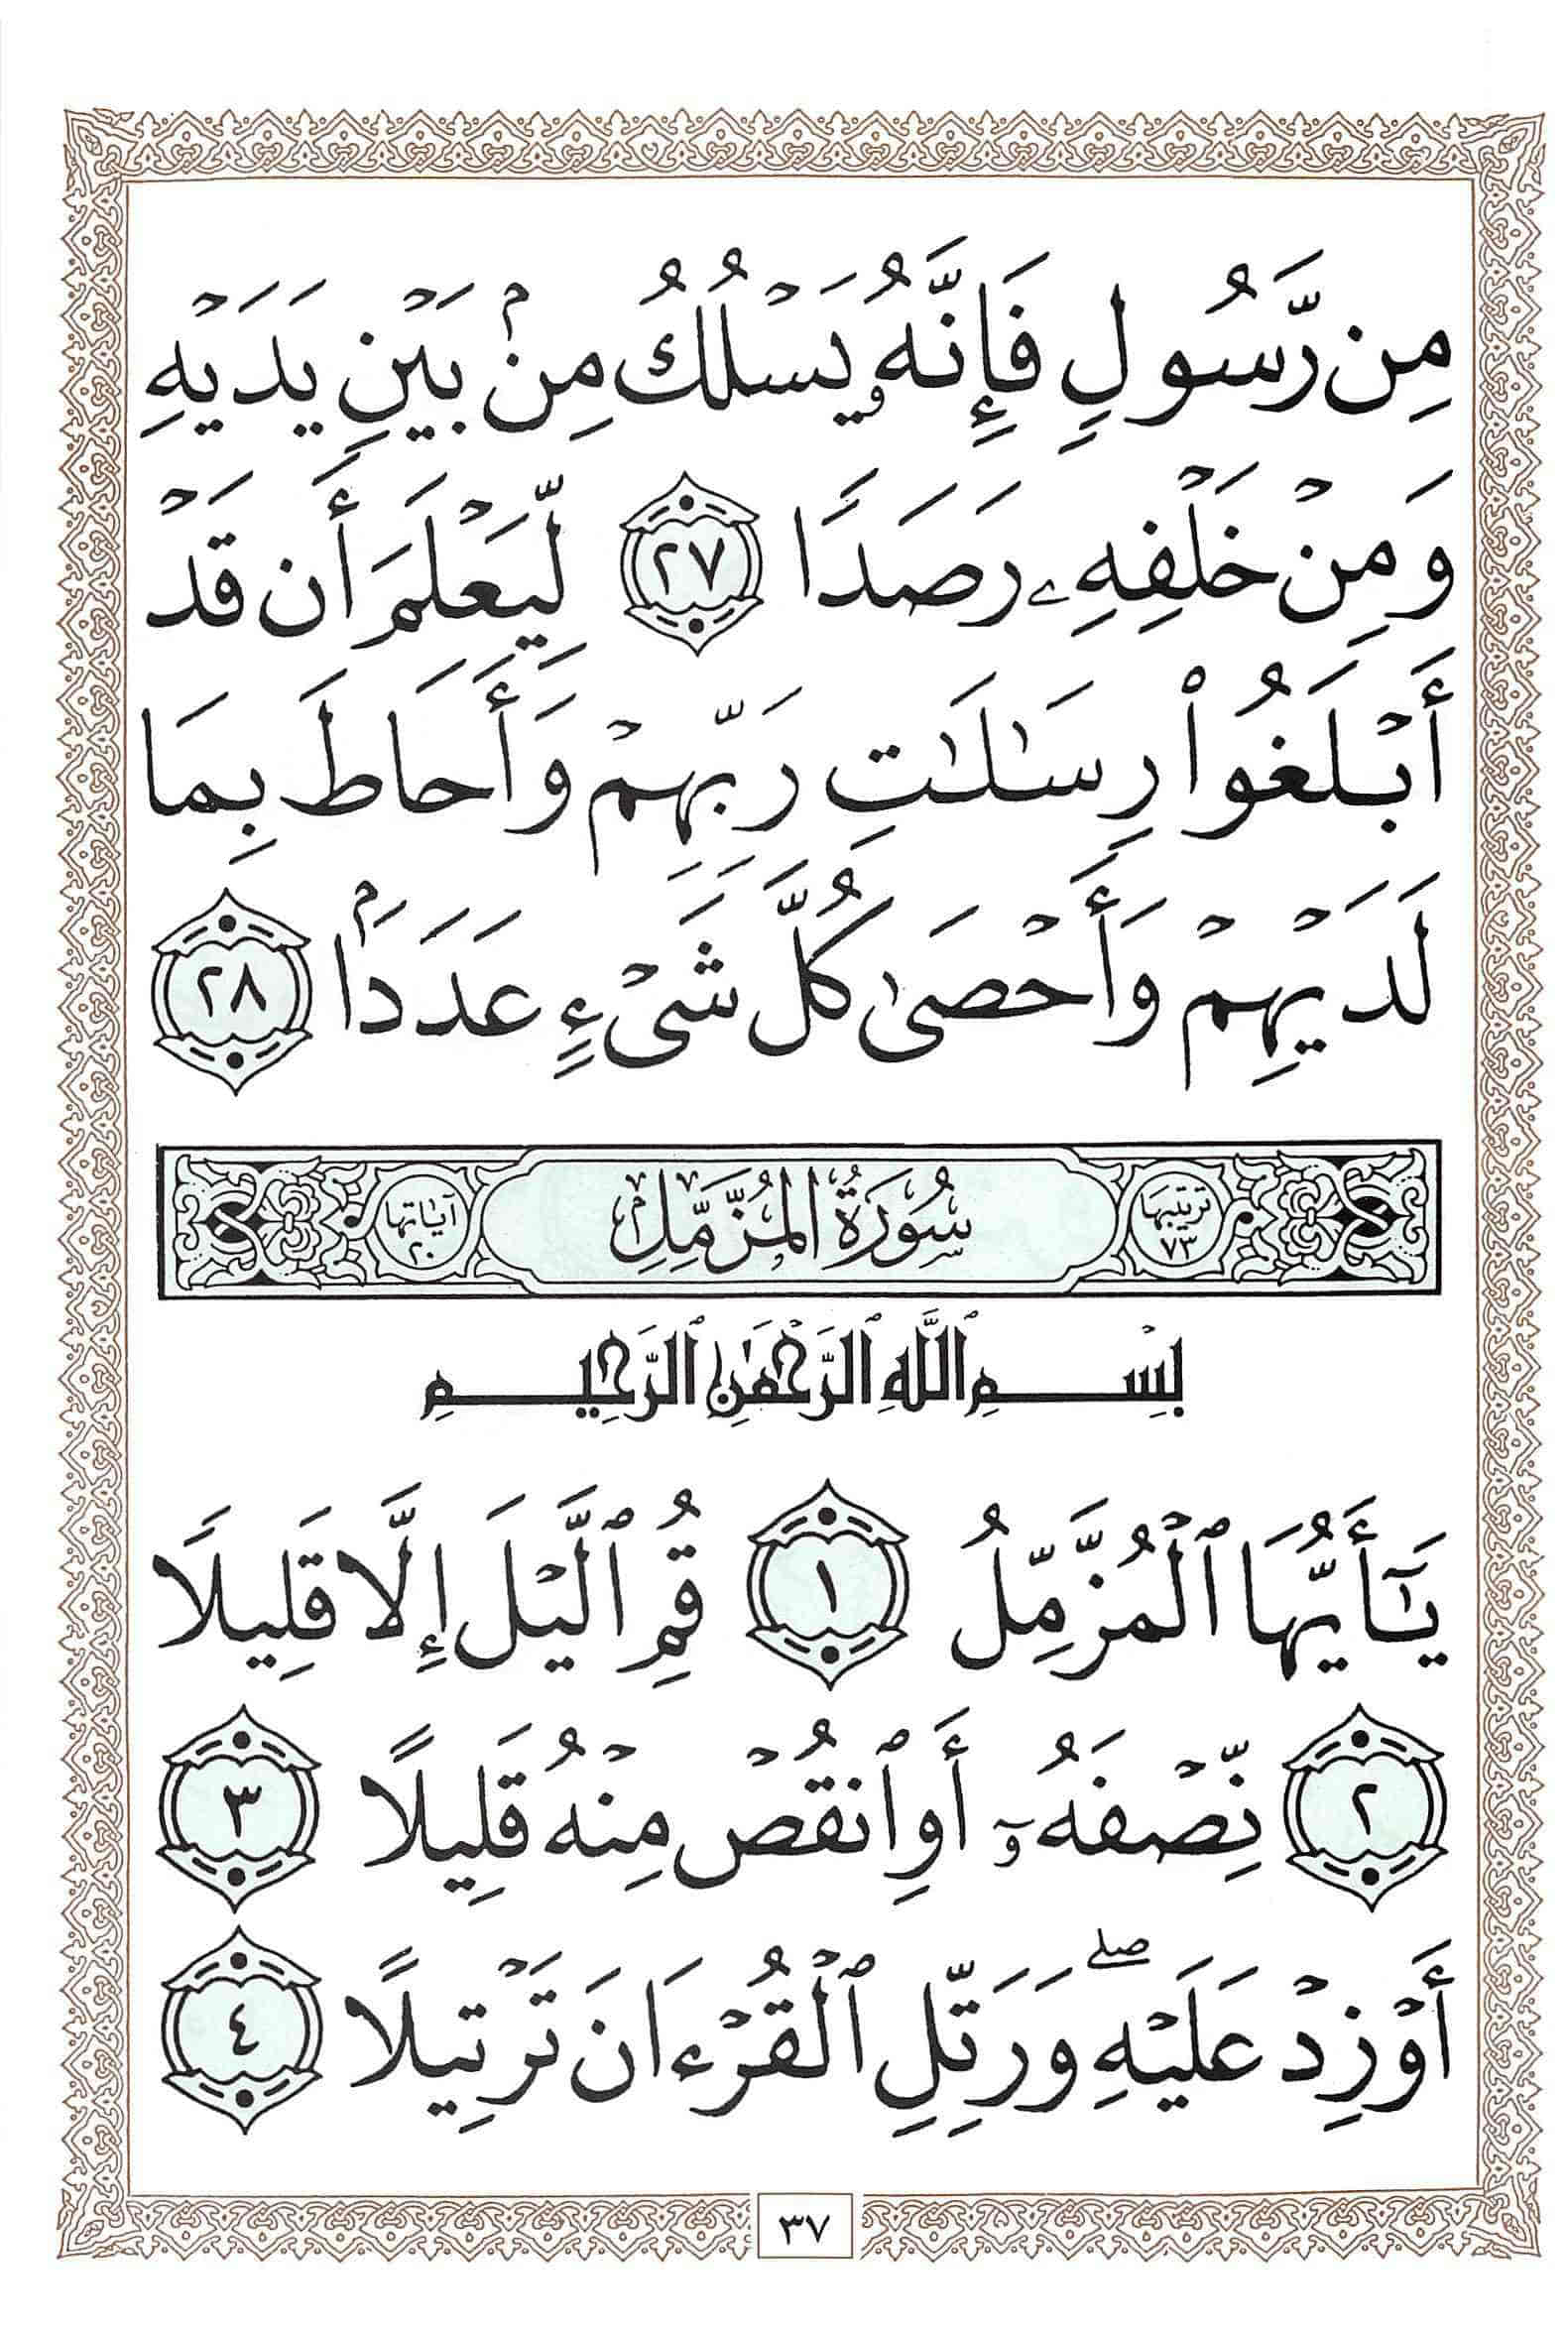 مِن رَّسُولٍ فَإِنَّهُۥ يَسۡلُكُ مِنۢ بَيۡنِ يَدَيۡهِ
وَمِنۡ خَلۡفِهِۦ رَصَدٗا ٢٧ لِّيَعۡلَمَ أَن قَدۡ
أَبۡلَغُواْ رِسَٰلَٰتِ رَبِّهِمۡ وَأَحَاطَ بِمَا
لَدَيۡهِمۡ وَأَحۡصَىٰ كُلَّ شَيۡءٍ عَدَدَۢا ٢٨
تَرتيبُهَا ٧٣ سُورَةُ المُزَّمِّلِ آيَاتُهَا ٢٠
بِسۡمِ ٱللَّهِ ٱلرَّحۡمَٰنِ ٱلرَّحِيمِ
يَٰٓأَيُّهَا ٱلۡمُزَّمِّلُ ١ قُمِ ٱلَّيۡلَ إِلَّا قَلِيلٗا
٢ نِّصۡفَهُۥٓ أَوِ ٱنقُصۡ مِنۡهُ قَلِيلًا ٣
أَوۡ زِدۡ عَلَيۡهِۖ وَرَتِّلِ ٱلۡقُرۡءَانَ تَرۡتِيلًا ٤
٣٧